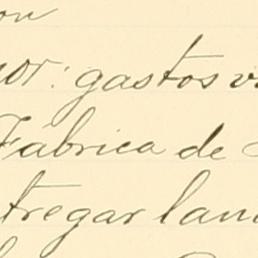 on
or: gastos v
Fabrica de
tregar lan